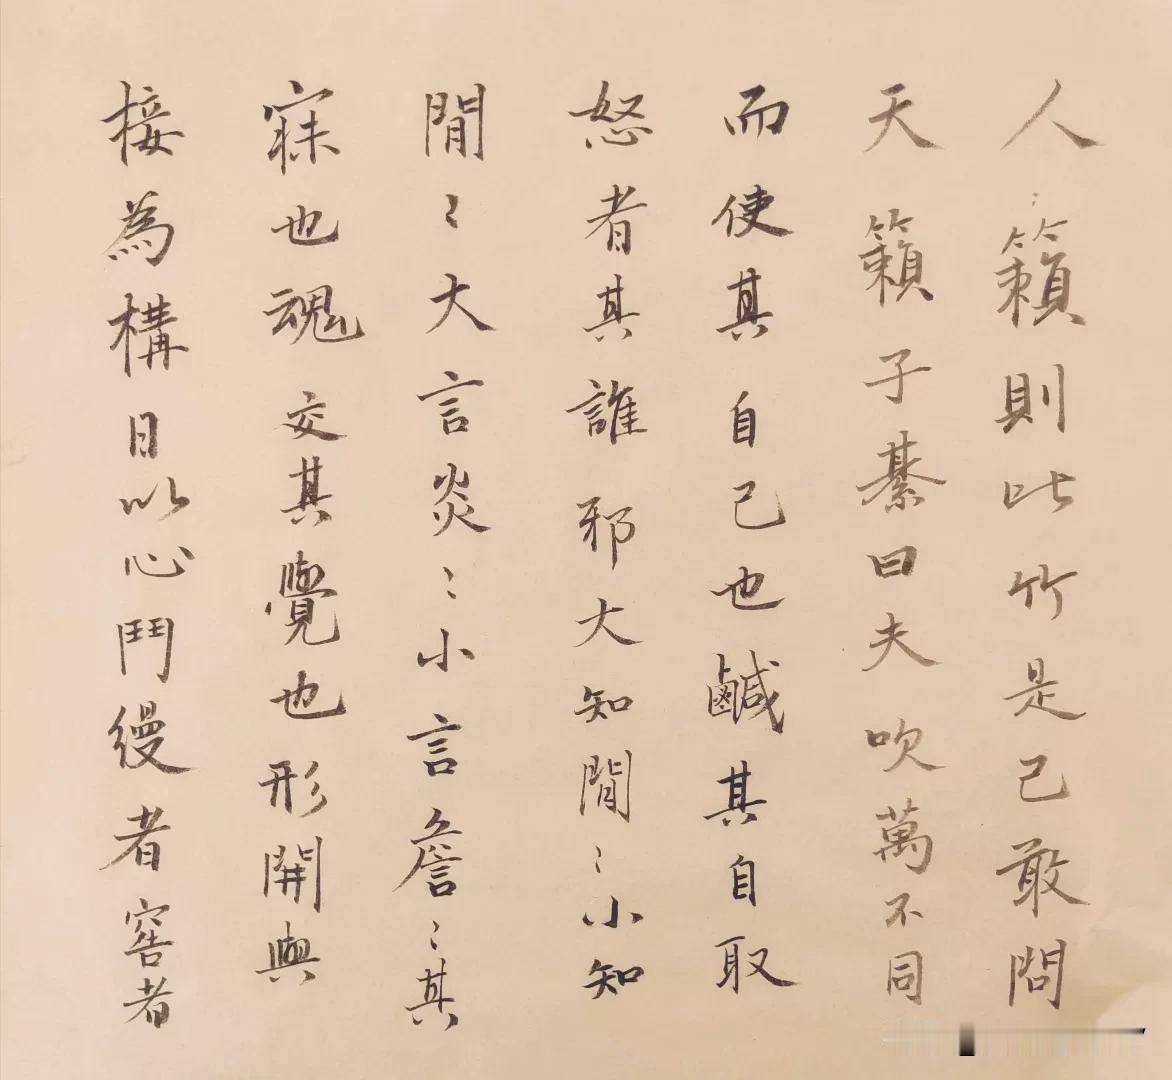 人籟則比竹是已敢問
天籟子綦曰夫吹萬不同
而使其自己也鹹其自取
怒者其誰邪大知閒〻小知
閒〻大言炎〻小言詹〻其
寐也魂交其覺也形開與
接為構日以心鬥縵者窖者